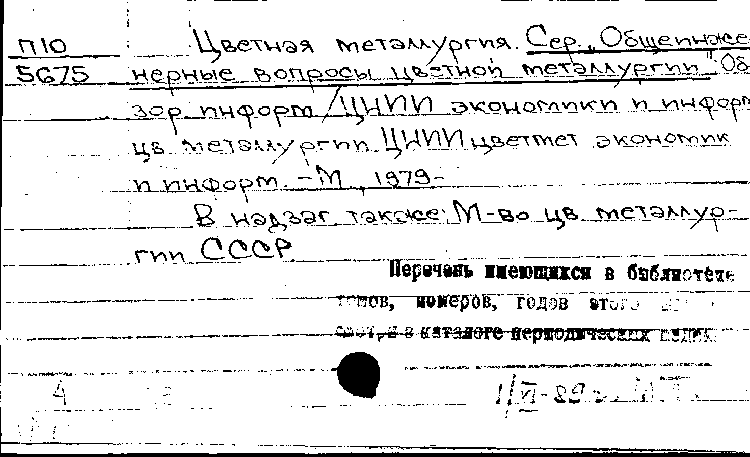 П10 Цветная металлургия. Сер. „Общеинже
5675 нерные вопросы цветной металлургии": Об
зор. информ. / ЦНИИ экономики и информ
цв. металлургии. ЦНИИцветмет экономик
и информ. – М., 1979–
В надзаг. также: М-во цв. металлур-
гии СССР
Перечень имеющихся в библиотеке
томов, номеров, годов этого
в каталоге периодических
4
1/VI-89 г.